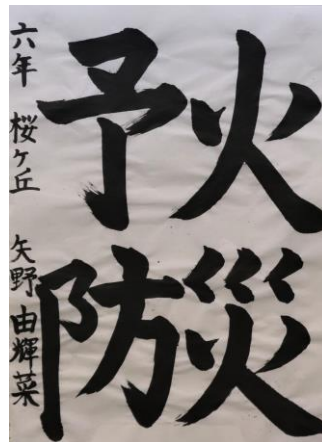 火災
予防
六年 桜ヶ丘 矢野由輝菜